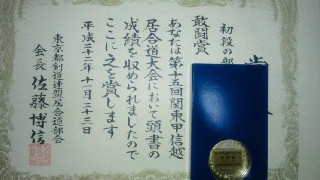 初段の部
敢闘賞
あなたは第十五回関東甲信越
居合道大会において頭書の
成績を収められましたので
ここに之を賞します
平成二十二年十一月二十三日
東京都剣道連盟居合道部会
会長 佐藤博信